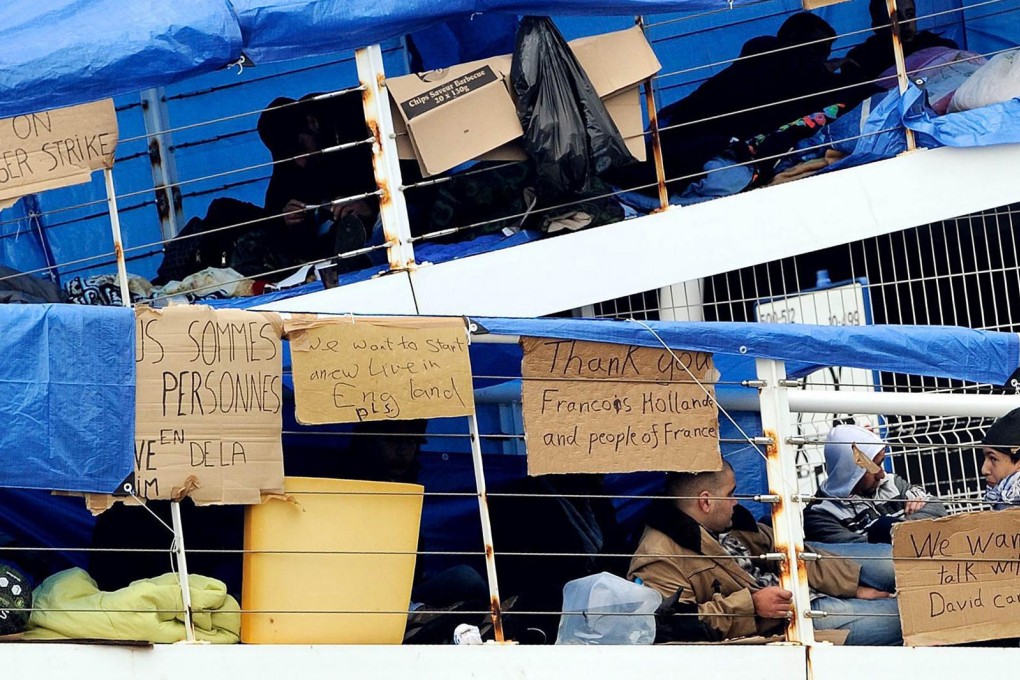 ON
GER STRIKE
Chips Saveur Barbecue
20 x 130g
US SOMMES
PERSONNES
EN
VE DE LA
IM
We want to Start
a new Live in
England
pls.
Thank you
Francois Hollande
and people of France
We wan
talk wi
David ca
500-512
10-499